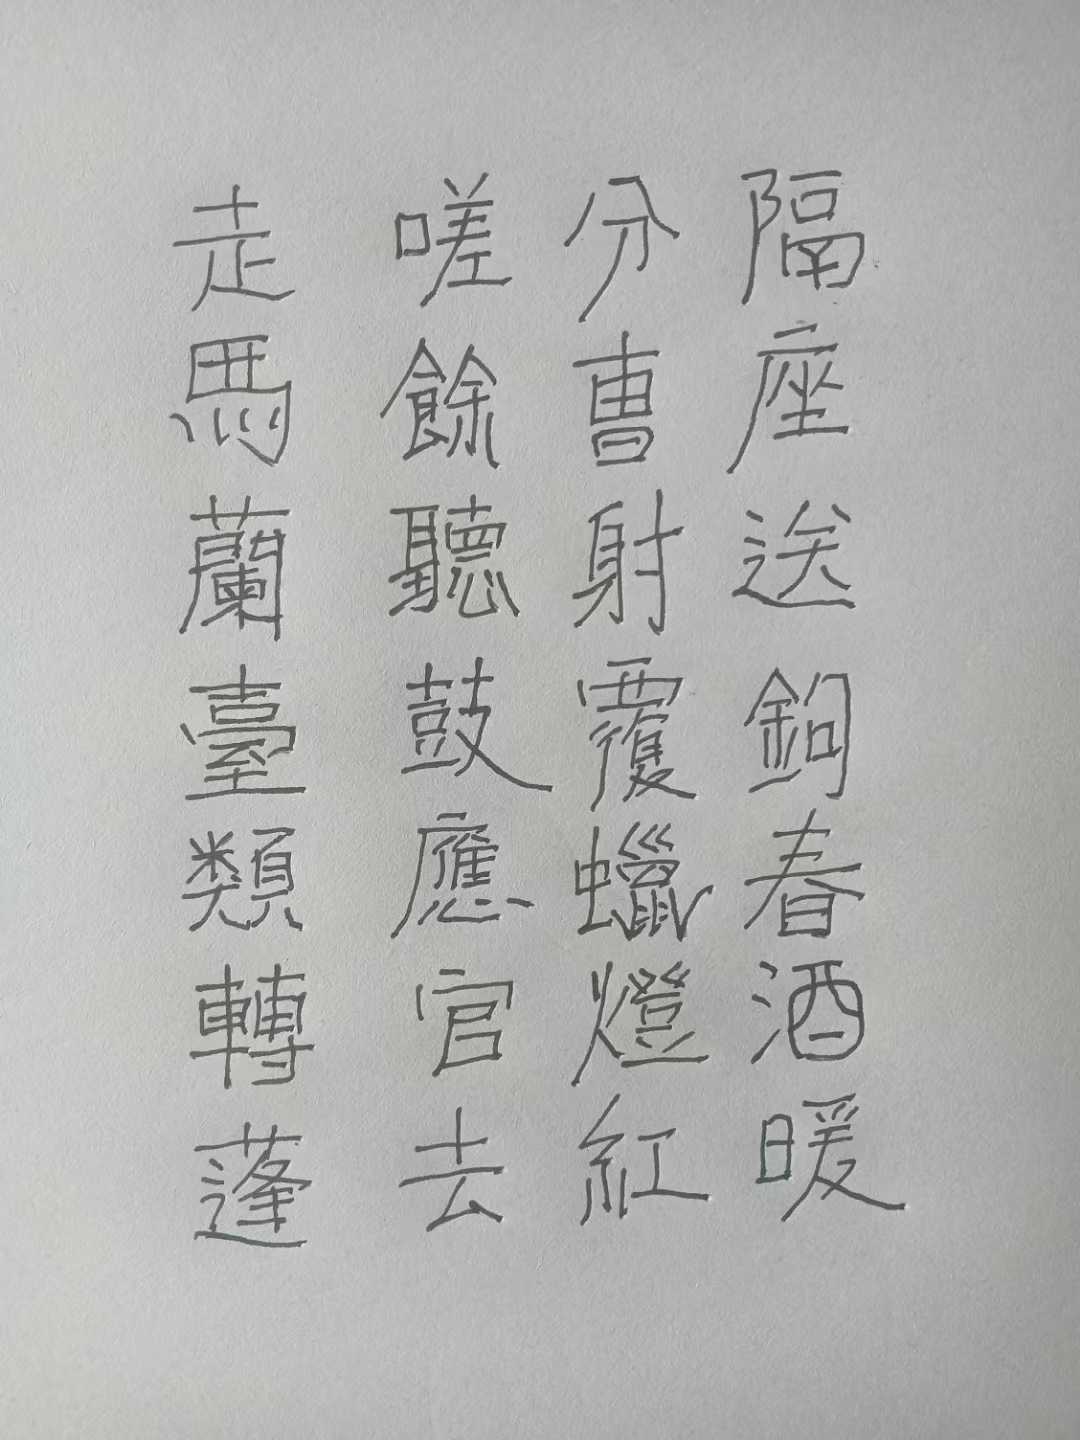 隔座送鉤春酒暖
分曹射覆蠟燈紅
嗟餘聽鼓應官去
走馬蘭臺類轉蓬